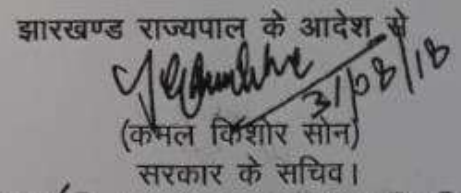 झारखण्ड राज्यपाल के आदेश से
31/08/18
(कमल किशोर सोन)
सरकार के सचिव।